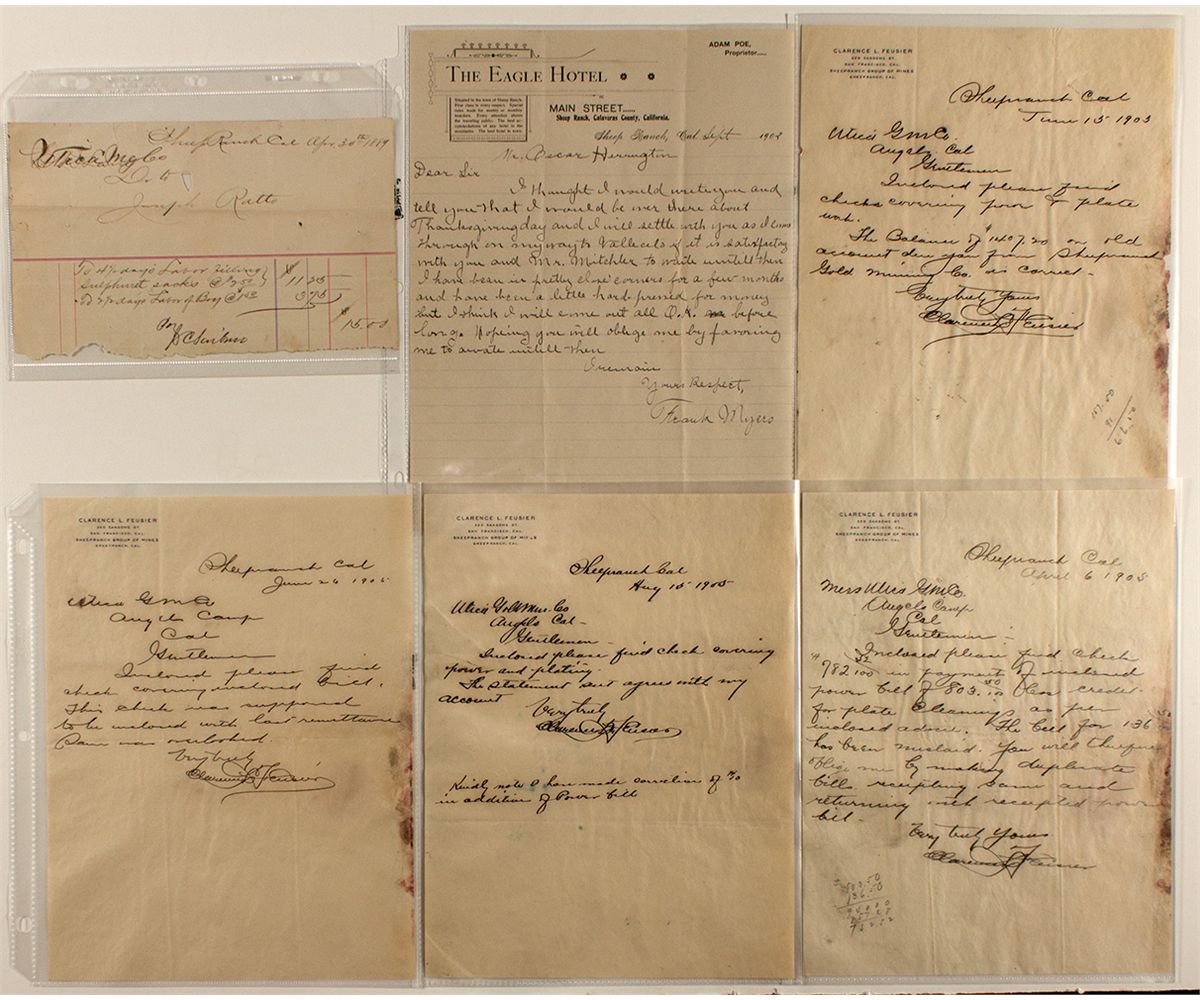 Sheep Ranch Cal Apr. 30th 1889
Utica Mg Co
Dr to
Joseph Ratto
To 4½ days Labor filling
Sulphuret sacks @ $2.50
$ 11 25
To 2½ days Labor of Boy @ 1.50
3 75
$ 15.00
THE EAGLE HOTEL
ADAM POE,
Proprietor.....
Situated in the town of Sheep Ranch.
First class in every respect. Special
rates made for weekly or monthly
boarders. Every attention shown
the traveling public. The best ac-
commodations of any hotel in the
mountains. The best hotel in town.
MAIN STREET.....
Sheep Ranch, Calaveras County, California.
Sheep Ranch, Cal Sept 1902
Mr. Oscar Herrington
Dear Sir
I thought I would write you and
tell you that I would be over there about
Thanksgiving day and I will settle with you as I come
through on my way to Vallecito if it is satisfactory
with you and Mr. Mitchler to waite untill then
I have been in pretty close corners for a few months
and have been a little hard pressed for money
but I think I will come out all O.K. before
long. Hoping you will oblige me by favoring
me to waite untill then
I remain
Yours Respect,
Frank Myers
CLARENCE L. FEUSIER
SAN FRANCISCO, CAL.
SHEEPRANCH GROUP OF MINES
SHEEPRANCH, CAL.
Sheepranch Cal
June 15 1905
Utica G M Co.
Angels Cal
Gentlemen
Inclosed please find
checks covering power & plate
The Balance of $1407.20 on old
account due you from Sheepranch
Gold Mining Co. is correct.
Very truly Yours
Clarence L Feusier
157.00
91
66.00
CLARENCE L. FEUSIER
SAN FRANCISCO, CAL.
SHEEPRANCH GROUP OF MINES
SHEEPRANCH, CAL.
Sheepranch Cal
June 26 1905
Utica G M Co
Angels Camp
Cal
Gentlemen
Inclosed please find
check covering inclosed bill.
This check was supposed
to be inclosed with last remittance
Same was overlooked.
Very truly
Clarence L Feusier
CLARENCE L. FEUSIER
SAN FRANCISCO, CAL.
SHEEPRANCH GROUP OF MINES
SHEEPRANCH, CAL.
Sheepranch Cal
Aug 15 1905
Utica Gold Min. Co
Angels Cal-
Gentlemen-
Inclosed please find check covering
power and plating.
The statement sent agrees with my
account
Very truly
Clarence L Feusier
Kindly note I have made correction of
in addition of Power bill
CLARENCE L. FEUSIER
SAN FRANCISCO, CAL.
SHEEPRANCH GROUP OF MINES
SHEEPRANCH, CAL.
Sheepranch Cal
April 6 1905
Mers Utica G M Co.
Angels Camp
Cal
Gentlemen-
Inclosed please find check
$782 52/100 in payment of inclosed
power bill of 803.50 less credit
for plate cleaning as per
inclosed advice. The bill for 136 50
has been mislaid. You will therefore
oblige me by making duplicate
bills receipting same and
returning with receipted power
bill-
Very truly Yours
Clarence L Feusier
803.50
136.50
940.00
782.52